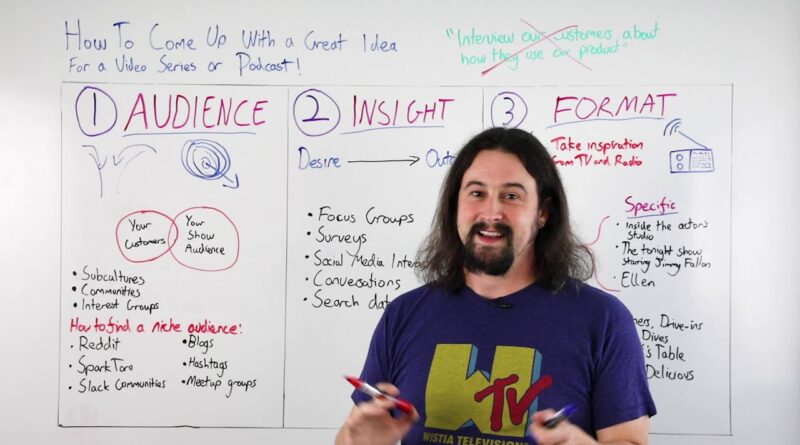 How To Come Up With a Great Idea
For a Video Series or Podcast!
"Interview our customers about
how they use our product"
1 AUDIENCE
Your
Customers
Your
Show
Audience
• Subcultures
• Communities
• Interest Groups
How to find a niche audience:
• Reddit
• SparkToro
• Slack Communities
• Blogs
• Hashtags
• Meetup groups
2 INSIGHT
Desire → Out
• Focus Groups
• Surveys
• Social Media Inter
• Conversations
• Search dat
3 FORMAT
Take inspiration
from TV and Radio
Specific
• Inside the actor's
Studio
• The tonight show
starring Jimmy Fallon
• Ellen
ners, Drive-ins
Dives
's Table
Delicious
W TV
WISTIA TELEVISION